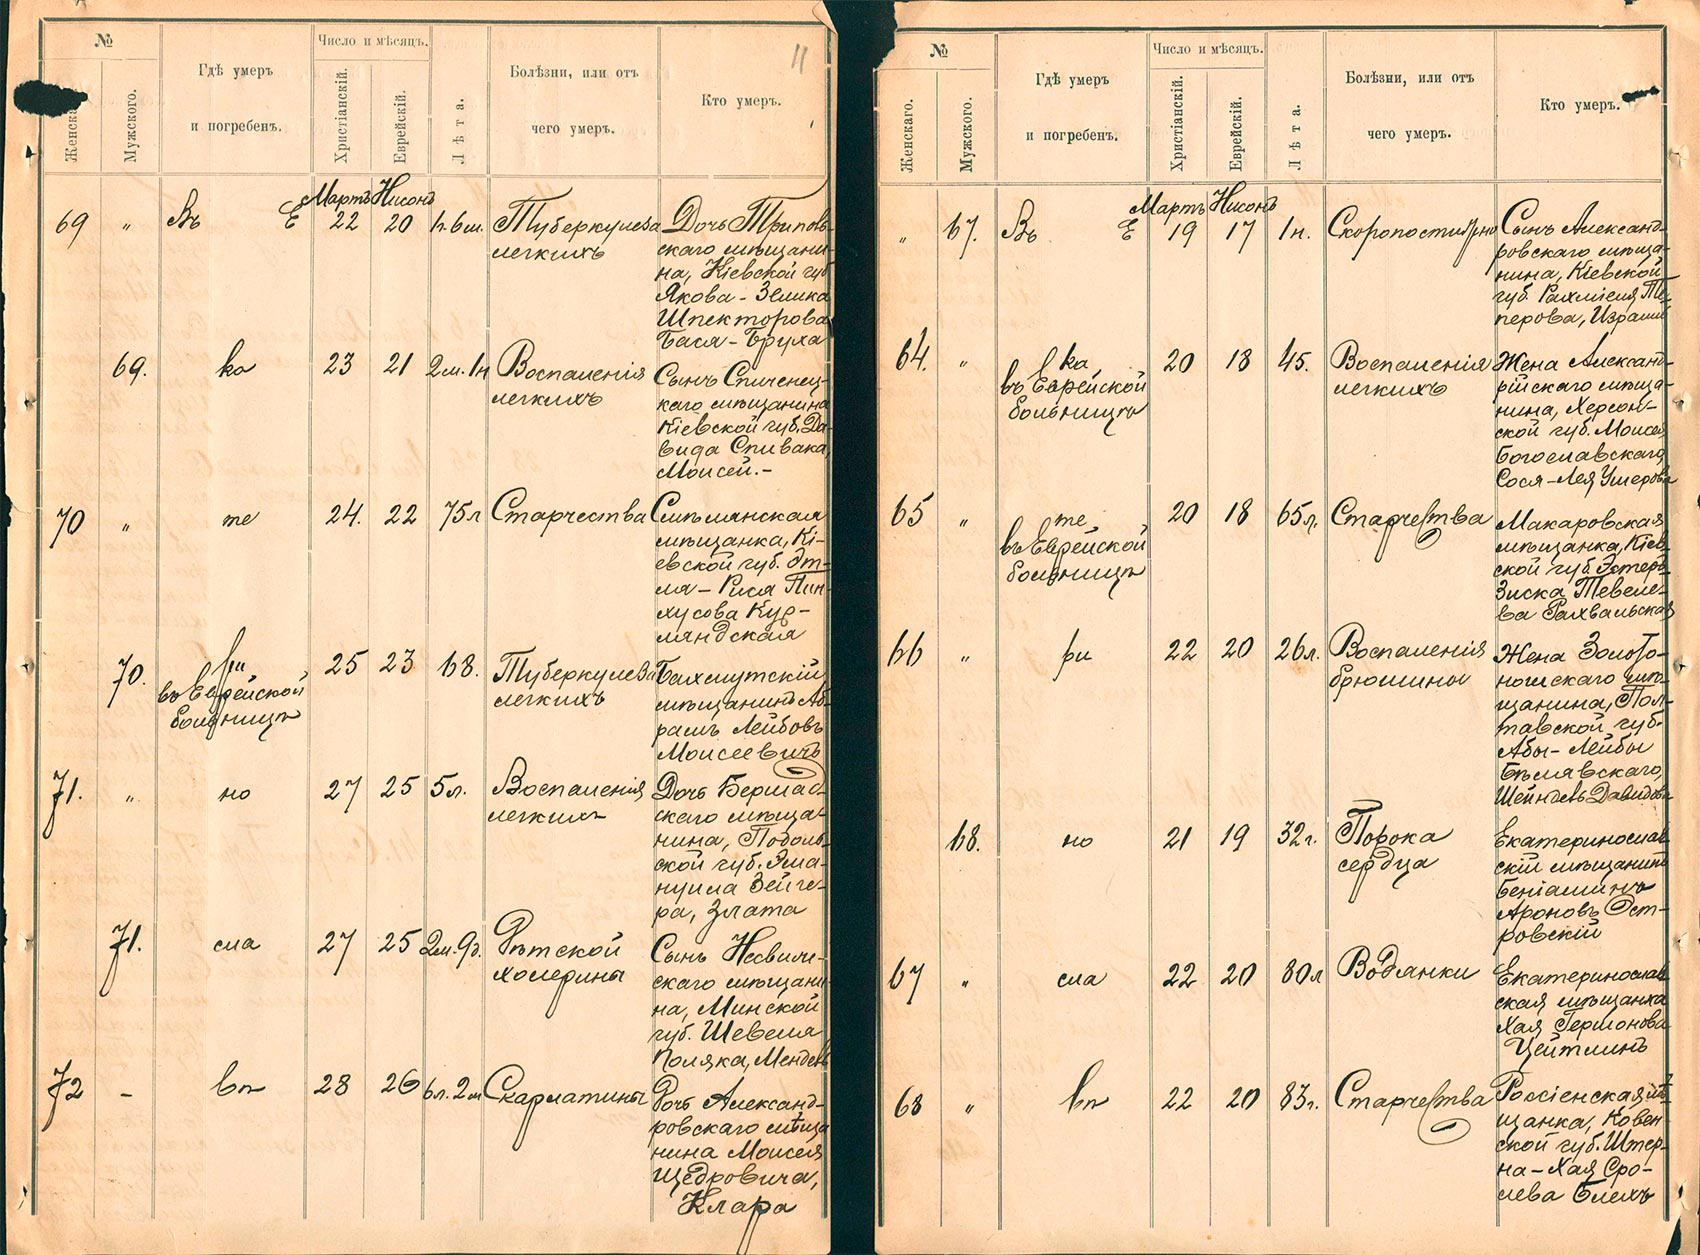 №
Гдѣ умеръ
и погребенъ.
Число и мѣсяцъ.
Христіанскій.
Еврейскій.
Лѣта.
Болѣзни, или отъ
чего умеръ.
Кто умеръ.
Мужского.
11
Мартъ Нисонъ
69 " Въ Е 22 20 Туберкулеза
легкихъ
Дочь Трипов-
скаго мѣщани-
на, Кіевской губ
Якова-Зелика
Шпекторова
Бася-Бруха
69. ка 23 21 2м. 1н Воспаленія
легкихъ
Сынъ Спиченец-
каго мѣщанина
Кіевской губ. Да-
вида Спивака,
Моисей.-
70 " те 24. 22 75л Старчества
Смѣлянская
мѣщанка, Кі-
евской губ. Эт-
ля-Рися Пин-
хусова Кур-
ляндская
70. ри
въ Еврейской
больницѣ
25 23 68. Туберкулеза
легкихъ
Бахмутскій
мѣщанинъ Аб-
рамъ Лейбовъ
Моисеевичъ
71. " но 27 25 5л. Воспаленія
легкихъ
Дочь Бершад-
скаго мѣща-
нина, Подоль-
ской губ. Эма-
нуила Зейге-
ра, Злата
71. сла 27 25 2м. 9д. Дѣтской
холерины
Сынъ Несвиж-
скаго мѣщани-
на, Минской
губ. Шевеля
Поляка, Мендель
72 - вѣ 28 26 6л. 2м Скарлатины
Дочь Александ-
ровскаго мѣща
нина Моисея
Щедровича,
Клара
№
Женскаго.
Мужского.
Гдѣ умеръ
и погребенъ.
Число и мѣсяцъ.
Христіанскій.
Еврейскій.
Лѣта.
Болѣзни, или отъ
чего умеръ.
Кто умеръ.
Мартъ Нисонъ
" 67. Въ Е 19 17 1н. Скоропостижно
Сынъ Александ-
ровскаго мѣща-
нина, Кіевской
губ. Рахміеля Те-
перова, Израиль
64. " ка
въ Еврейской
больницѣ
20 18 45. Воспаленія
легкихъ
Жена Александ-
рійскаго мѣща-
нина, Херсон-
ской губ. Моисея
Богославскаго,
Сося-Лея Ушерова
65 " те
въ Еврейской
больницѣ
20 18 65л. Старчества
Макаровская
мѣщанка, Кіев-
ской губ. Эстеръ-
Зиска Тевеле-
ва Рахвальская
66 " ри 22 20 26л. Воспаленія
брюшины
Жена Золото-
ношскаго мѣ-
щанина, Пол-
тавской губ.
Абы-Лейбы
Бѣлявскаго,
Шейндель Давидова
68. но 21 19 32г. Порока
сердца
Екатеринослав
скій мѣщанинъ
Беніаминъ
Ароновъ Ост-
ровскій
67 " сла 22 20 80л Водянки
Екатеринослав
ская мѣщанка
Хая Гершонова
Цейтлинъ
68 " вѣ 22 20 83г. Старчества
Россіенская мѣ
щанка, Ковен
ской губ. Штер-
на-Хая Сро-
лева Блехъ